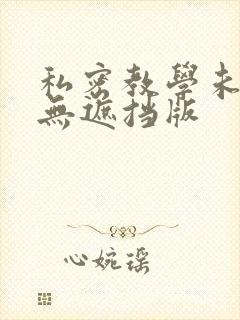 私密教學未
無遮挡版
心婉瑶